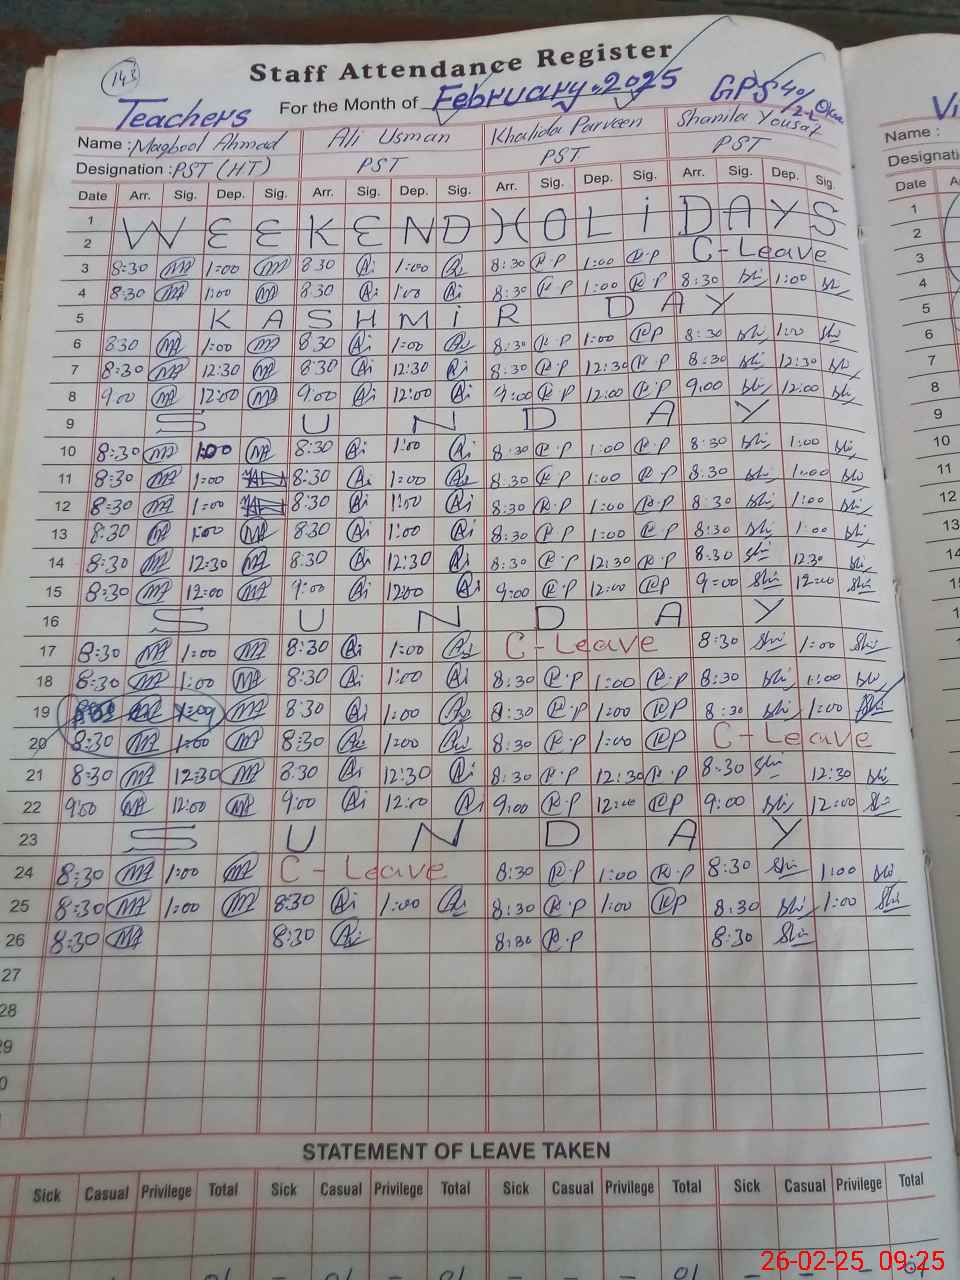 143
Staff Attendance Register
Teachers For the Month of February.2025 GPS 40/2-L
Name : Maqbool Ahmad Ali Usman Khalida Parveen Shanila Yousaf
Designation : PST (HT) PST PST PST
Date Arr. Sig. Dep. Sig. Arr. Sig. Dep. Sig. Arr. Sig. Dep. Sig. Arr. Sig. Dep. Sig.
1
WEEKEND HOLIDAYS
2
3 8:30 MA 1:00 MA 8:30 Ai 1:00 Ai 8:30 R.P 1:00 R.P C-Leave
4 8:30 MA 1:00 MA 8:30 Ai 1:00 Ai 8:30 R.P 1:00 R.P 8:30 Shi 1:00 Shi
5 KASHMiR DAY
6 8:30 MA 1:00 MA 8:30 Ai 1:00 Ai 8:30 R.P 1:00 R.P 8:30 Shi 1:00 Shi
7 8:30 MA 12:30 MA 8:30 Ai 12:30 Ai 8:30 R.P 12:30 R.P 8:30 Shi 12:30 Shi
8 9:00 MA 12:00 MA 9:00 Ai 12:00 Ai 9:00 R.P 12:00 R.P 9:00 Shi 12:00 Shi
9 SUNDAY
10 8:30 MA 1:00 MA 8:30 Ai 1:00 Ai 8:30 R.P 1:00 R.P 8:30 Shi 1:00 Shi
11 8:30 MA 1:00 8:30 Ai 1:00 Ai 8:30 R.P 1:00 R.P 8:30 Shi 1:00 Shi
12 8:30 MA 1:00 8:30 Ai 1:00 Ai 8:30 R.P 1:00 R.P 8:30 Shi 1:00 Shi
13 8:30 MA 1:00 MA 8:30 Ai 1:00 Ai 8:30 R.P 1:00 R.P 8:30 Shi 1:00 Shi
14 8:30 MA 12:30 MA 8:30 Ai 12:30 Ai 8:30 R.P 12:30 R.P 8:30 Shi 12:30 Shi
15 8:30 MA 12:00 MA 9:00 Ai 12:00 Ai 9:00 R.P 12:00 R.P 9:00 Shi 12:00 Shi
16 SUNDAY
17 8:30 MA 1:00 MA 8:30 Ai 1:00 Ai C-Leave 8:30 Shi 1:00 Shi
18 8:30 MA 1:00 MA 8:30 Ai 1:00 Ai 8:30 R.P 1:00 R.P 8:30 Shi 1:00 Shi
19 MA 1:00 MA 8:30 Ai 1:00 Ai 8:30 R.P 1:00 R.P 8:30 Shi 1:00 Shi
20 8:30 MA 1:00 MA 8:30 Ai 1:00 Ai 8:30 R.P 1:00 R.P C-Leave
21 8:30 MA 12:30 MA 8:30 Ai 12:30 Ai 8:30 R.P 12:30 R.P 8:30 Shi 12:30 Shi
22 9:00 MA 12:00 MA 9:00 Ai 12:00 Ai 9:00 R.P 12:00 R.P 9:00 Shi 12:00 Shi
23 SUNDAY
24 8:30 MA 1:00 MA C-Leave 8:30 R.P 1:00 R.P 8:30 Shi 1:00 Shi
25 8:30 MA 1:00 MA 8:30 Ai 1:00 Ai 8:30 R.P 1:00 R.P 8:30 Shi 1:00 Shi
26 8:30 MA 8:30 Ai 8:30 R.P 8:30 Shi
27
28
STATEMENT OF LEAVE TAKEN
Sick Casual Privilege Total Sick Casual Privilege Total Sick Casual Privilege Total Sick Casual Privilege Total
Name :
Date
1
2
3
4
5
6
7
8
9
10
11
12
13
26-02-25 09:25